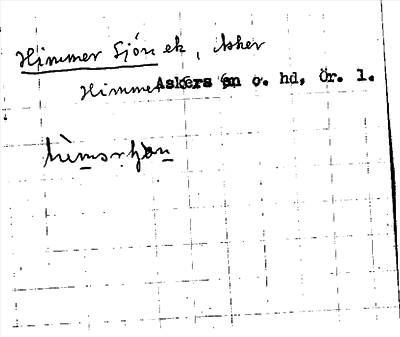 Himmer Sjön ek, Asker
Himme Askers sn o. hd, Ör. l.
hìmərʃɔn